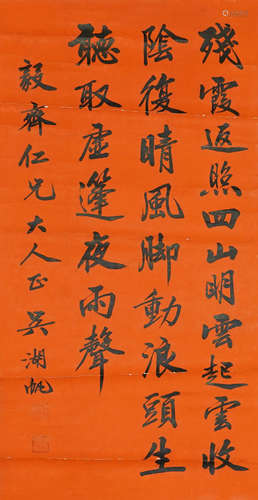 殘霞返照四山明雲起雲收
陰復晴風脚動浪頭生
聽取虛篷夜雨聲
毅齋仁兄大人正吳湖帆